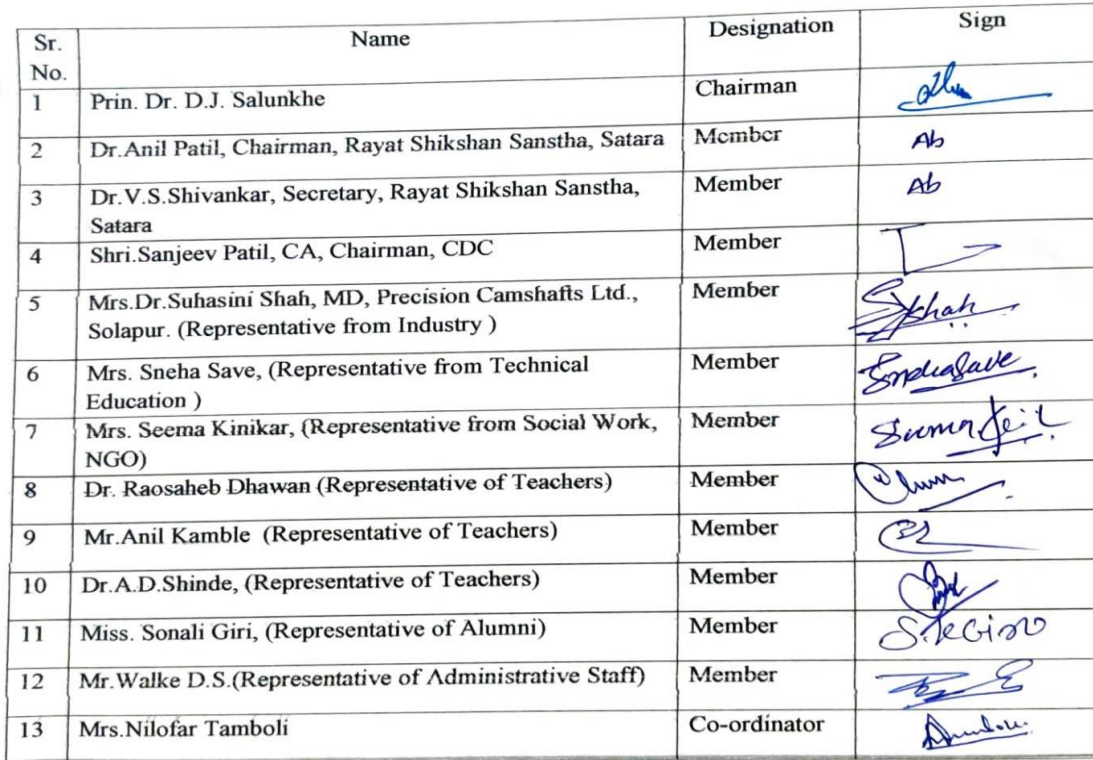 Sr. No. Name Designation Sign
1 Prin. Dr. D.J. Salunkhe Chairman
2 Dr.Anil Patil, Chairman, Rayat Shikshan Sanstha, Satara Member Ab
3 Dr.V.S.Shivankar, Secretary, Rayat Shikshan Sanstha, Member Ab
Satara
4 Shri.Sanjeev Patil, CA, Chairman, CDC Member
5 Mrs.Dr.Suhasini Shah, MD, Precision Camshafts Ltd., Member
Solapur. (Representative from Industry )
6 Mrs. Sneha Save, (Representative from Technical Member
Education )
7 Mrs. Seema Kinikar, (Representative from Social Work, Member
NGO)
8 Dr. Raosaheb Dhawan (Representative of Teachers) Member
9 Mr.Anil Kamble (Representative of Teachers) Member
10 Dr.A.D.Shinde, (Representative of Teachers) Member
11 Miss. Sonali Giri, (Representative of Alumni) Member
12 Mr.Walke D.S.(Representative of Administrative Staff) Member
13 Mrs.Nilofar Tamboli Co-ordinator